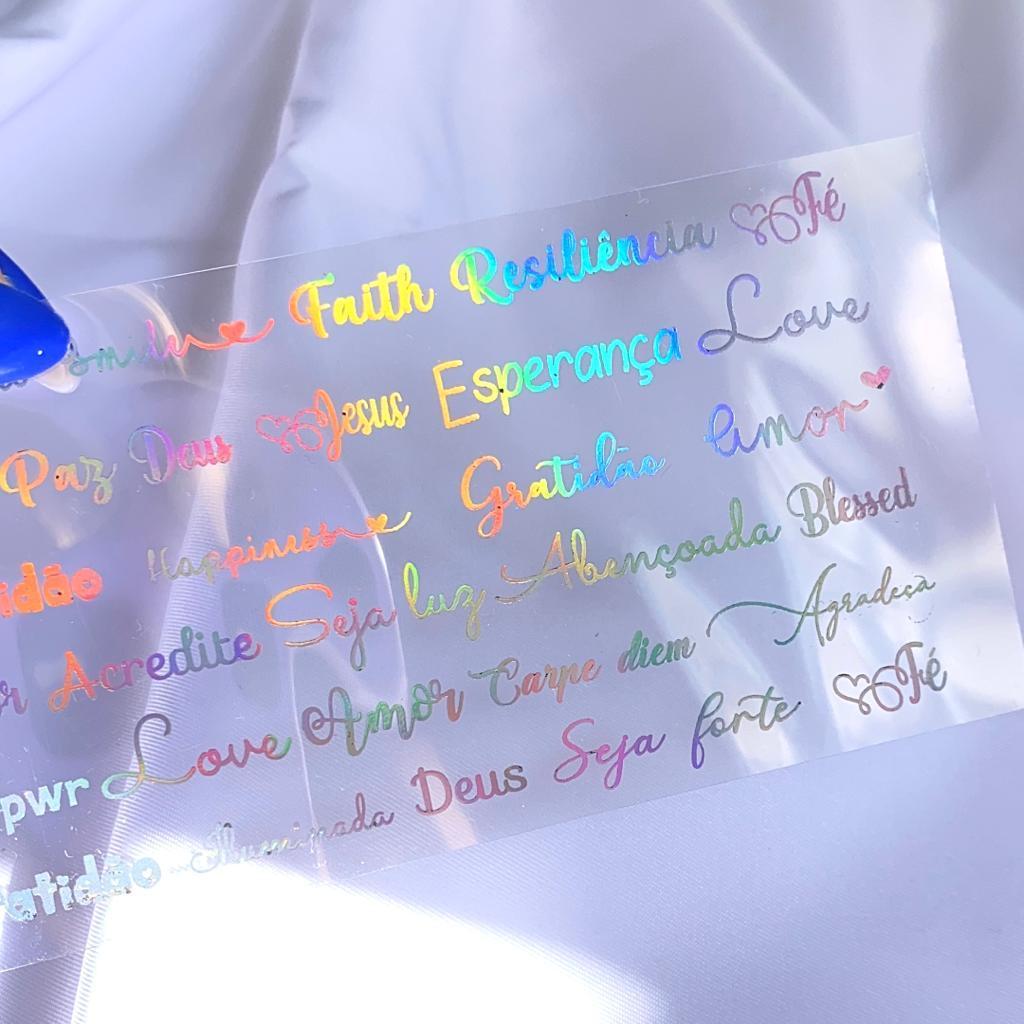 Faith Resiliência Fé
Paz Deus Jesus Esperança Love
Happiness Gratidão Amor
Acredite Seja luz Abençoada Blessed
pwr Love Amor Carpe diem Agradeça
atidão Iluminada Deus Seja forte Fé